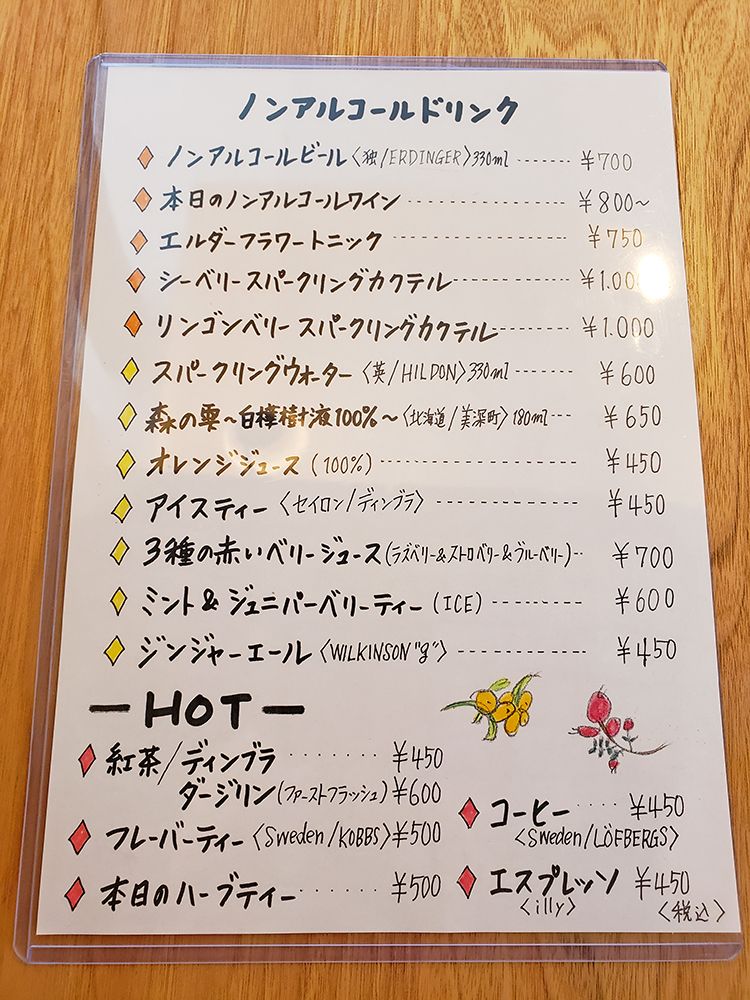 ノンアルコールドリンク
ノンアルコールビール〈独/ERDINGER〉330ml ------- ¥700
本日のノンアルコールワイン ---------------- ¥800~
エルダーフラワートニック ---------------- ¥750
シーベリースパークリングカクテル ---------- ¥1.000
リンゴンベリースパークリングカクテル ------- ¥1.000
スパークリングウォーター〈英/HILDON〉330ml ------- ¥600
森の雫~白樺樹液100%~〈北海道/美深町〉180ml --- ¥650
オレンジジュース(100%) ----------------- ¥450
アイスティー〈セイロン/ディンブラ〉 ------------- ¥450
3種の赤いベリージュース(ラズベリー&ストロベリー&ブルーベリー)-- ¥700
ミント&ジュニパーベリーティー(ICE) ---------- ¥600
ジンジャーエール〈WILKINSON"g"〉 ------------ ¥450
ーHOTー
紅茶/ディンブラ ········ ¥450
ダージリン(ファーストフラッシュ)¥600
フレーバーティー〈Sweden/KOBBS〉¥500
本日のハーブティー ······ ¥500
コーヒー ···· ¥450
〈Sweden/LÖFBERGS〉
エスプレッソ ¥450
〈illy〉
〈税込〉